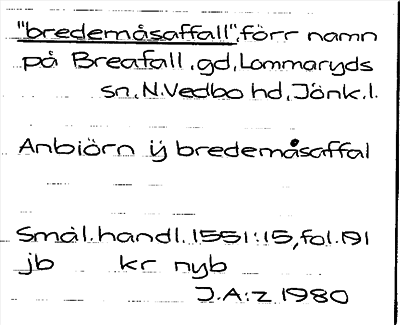 "bredemåsaffall", förr namn
på Breafall, gd, Lommaryds
sn, N. Vedbo hd, Jönk. l.
Anbiörn ÿ bredemåsaffal
Smål. handl. 1551:15, fol. 191
jb kr nyb
J.A:z 1980